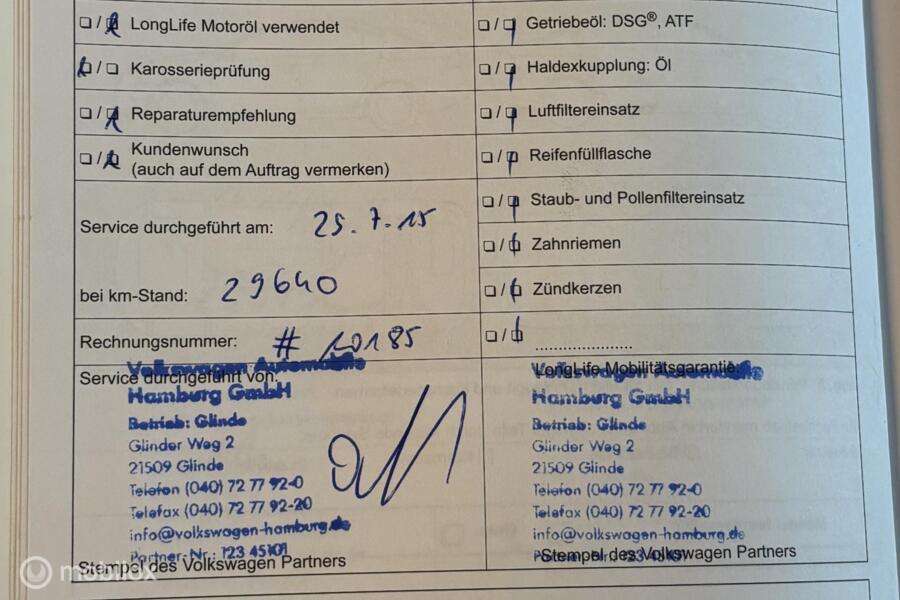 LongLife Motoröl verwendet
Karosserieprüfung
Reparaturempfehlung
Kundenwunsch
(auch auf dem Auftrag vermerken)
Service durchgeführt am: 25.7.15
bei km-Stand: 29640
Rechnungsnummer: # 10185
Getriebeöl: DSG®, ATF
Haldexkupplung: Öl
Luftfiltereinsatz
Reifenfüllflasche
Staub- und Pollenfiltereinsatz
Zahnriemen
Zündkerzen
......................
Service durchgeführt von:
Volkswagen Automobile
Hamburg GmbH
Betrieb: Glinde
Glinder Weg 2
21509 Glinde
Telefon (040) 72 77 92-0
Telefax (040) 72 77 92-20
info@volkswagen-hamburg.de
Partner-Nr.: 123 45101
Stempel des Volkswagen Partners
LongLife Mobilitätsgarantie:
Volkswagen Automobile
Hamburg GmbH
Betrieb: Glinde
Glinder Weg 2
21509 Glinde
Telefon (040) 72 77 92-0
Telefax (040) 72 77 92-20
info@volkswagen-hamburg.de
Stempel des Volkswagen Partners
mobilox